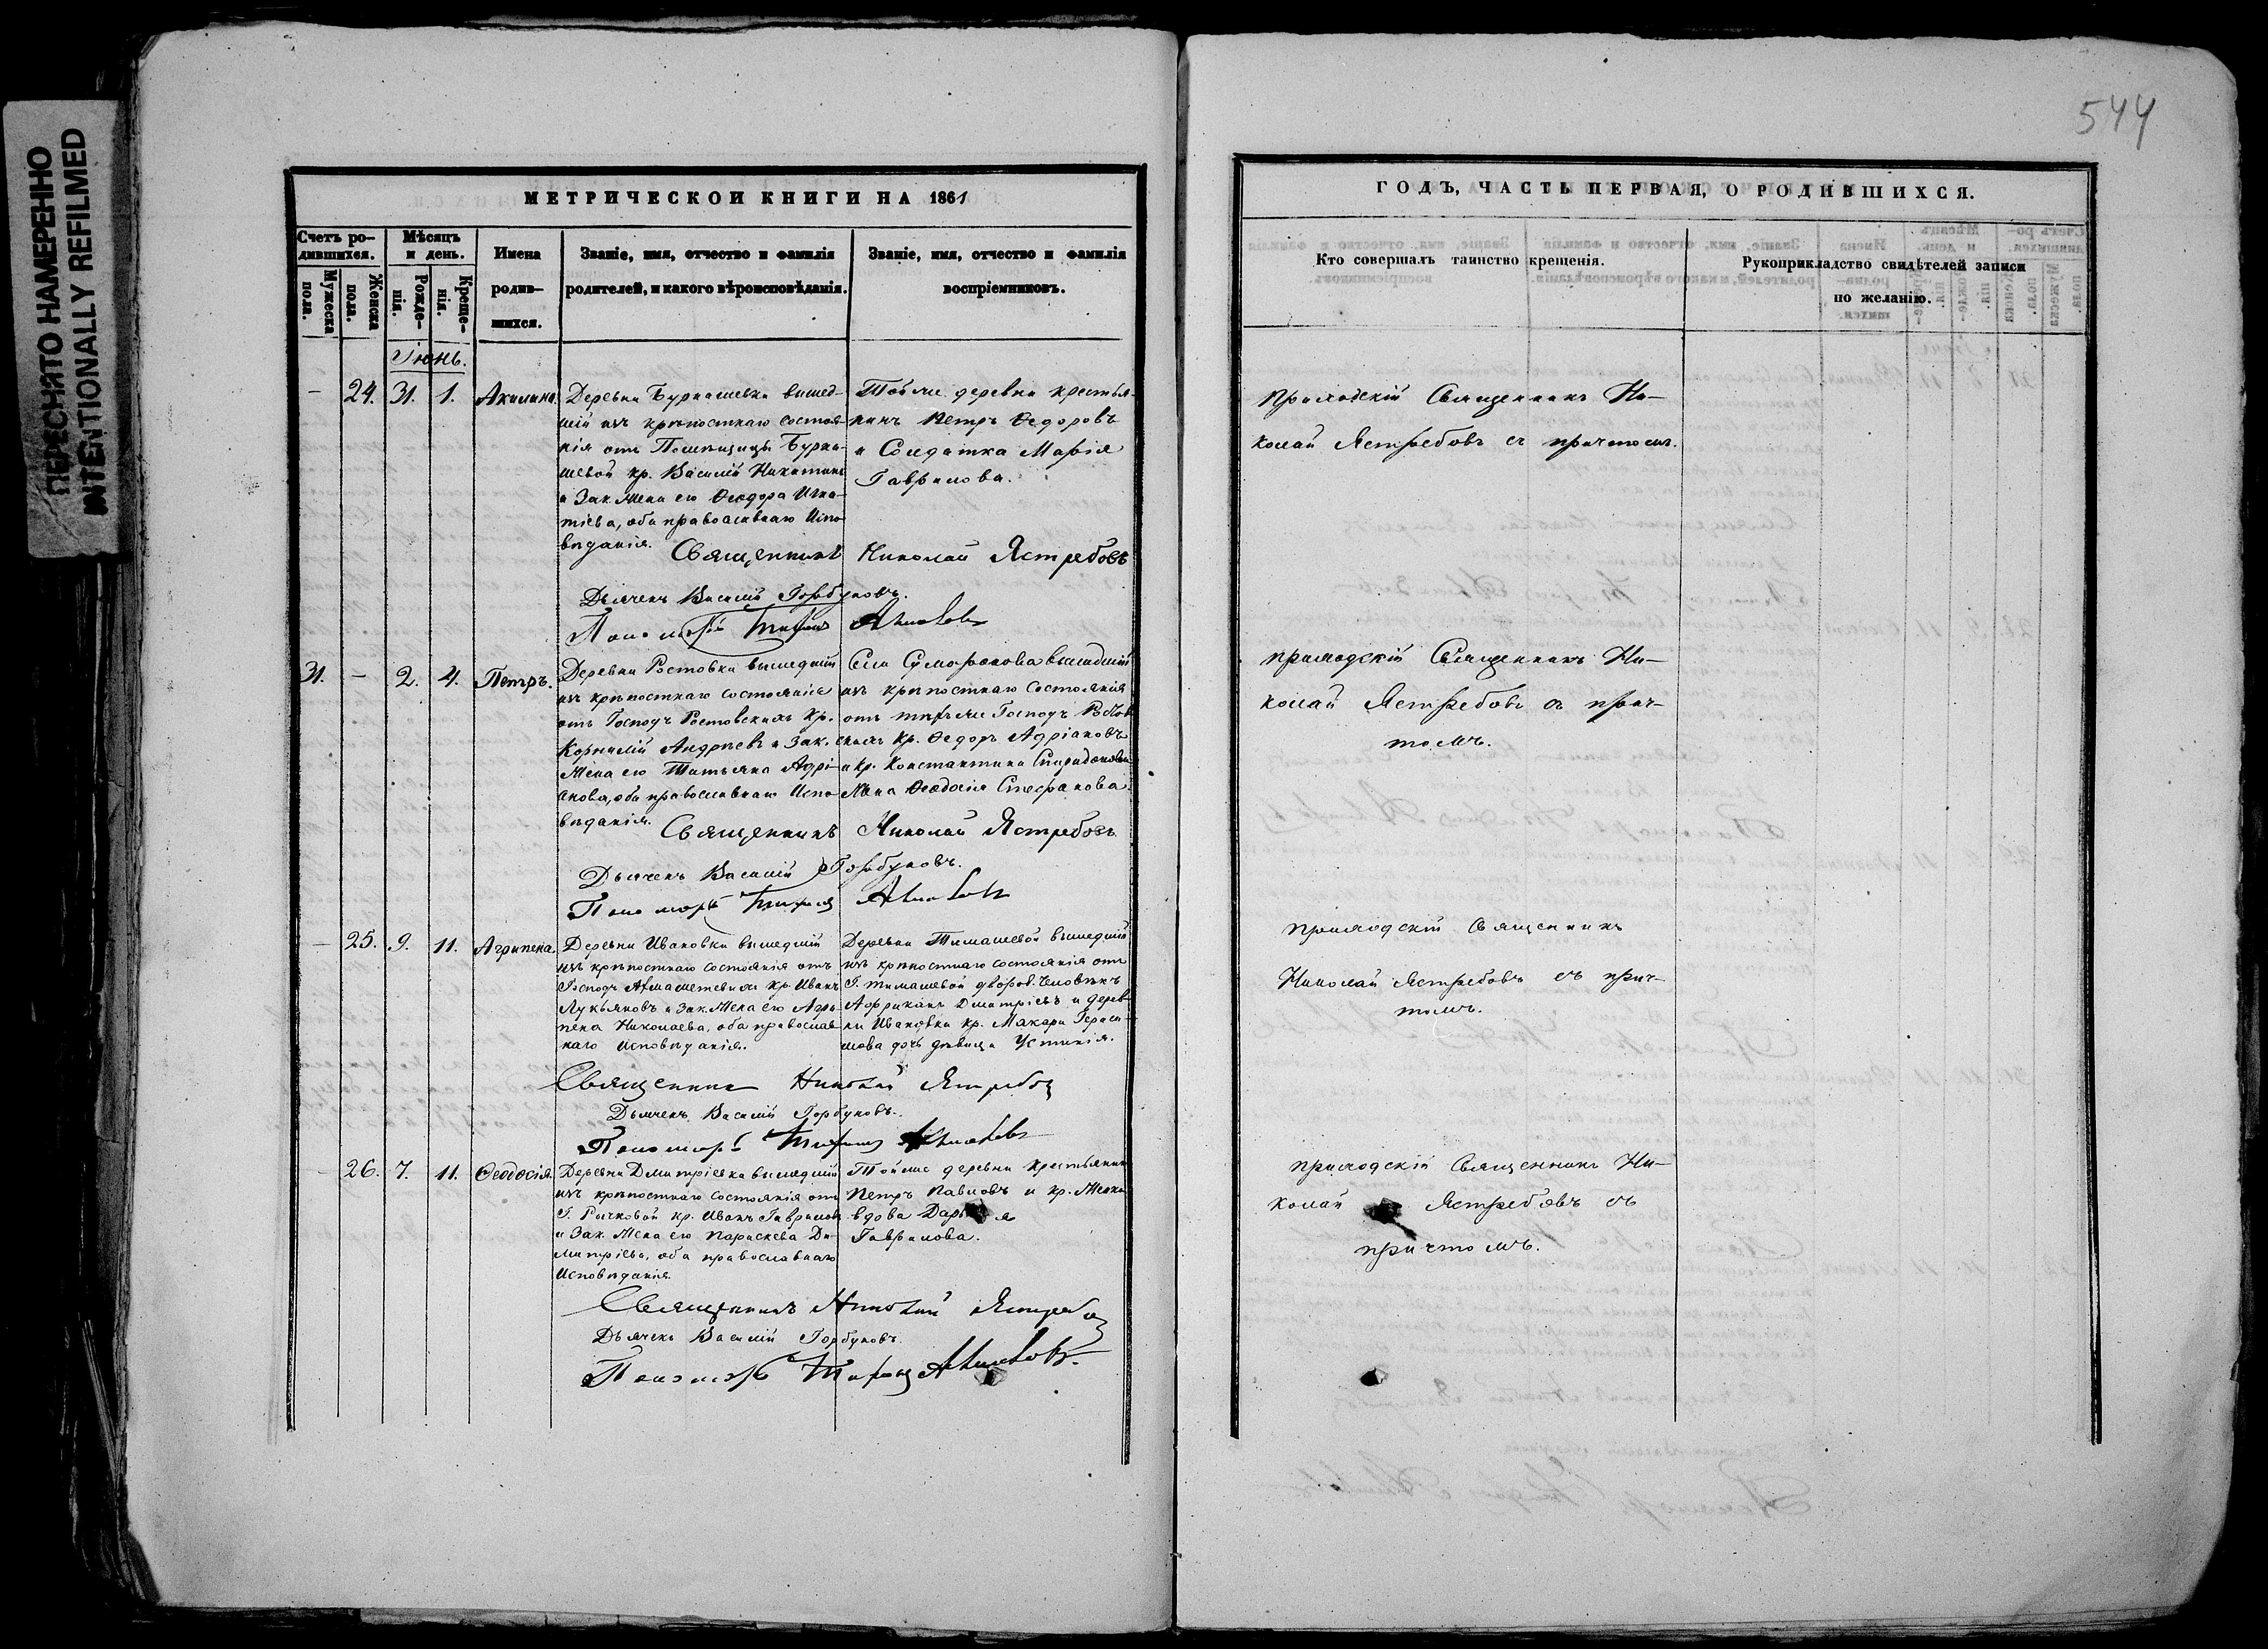 ПЕРЕСНЯТО НАМЕРЕННО
INTENTIONALLY REFILMED
МЕТРИЧЕСКОЙ КНИГИ НА 1861
Счетъ ро-
дившихся.
Мужеска
пола.
Женска
пола.
Мѣсяцъ
и день.
Рожде-
нія.
Креще-
нія.
Имена
родив-
шихся.
Званіе, имя, отчество и фамилія
родителей, и какого вѣроисповѣданія.
Званіе, имя, отчество и фамилія
воспріемниковъ.
Іюнь.
— 24. 31. 1. Акилина.
Деревни Бурнашевки вышед-
шій изъ крѣпостнаго состоя-
нія отъ Помѣщицы Бурна-
шевой кр. Василій Никитинъ
и Зак. Жена его Ѳеодора Игна-
тіева, оба православнаго Испо-
вѣданія.
Тойже деревни крестья-
нинъ Петръ Ѳедоровъ
и Солдатка Марія
Гаврилова.
Священникъ Николай Ястребовъ
Дьячекъ Василій Горбуновъ.
Пономарь
31. — 2. 4. Петръ.
Деревни Ростовки вышедшій
изъ крѣпостнаго состоянія
отъ Господъ Ростовскихъ Кр.
Корнилій Андреевъ и Зак.
Жена его Татьяна Адрі-
анова, оба православнаго Испо-
вѣданія.
Села Сумарокова вышедшій
изъ крѣпостнаго Состоянія
отъ тѣхъ же Господъ Ростов-
скихъ Кр. Ѳедоръ Адріановъ
и кр. Константина Спиридонова
Жена Ѳеодосія Стефанова.
Священникъ Николай Ястребовъ
Дьячекъ Василій Горбуновъ.
Пономарь
— 25. 9. 11. Агрипена.
Деревни Ивановки вышедшій
изъ крѣпостнаго состоянія отъ
Господъ кр. Иванъ
Лукьяновъ и Зак. Жена его Агри-
пена Николаева, оба православ-
наго Исповѣданія.
Деревни Тимашевой вышедшій
изъ крѣпостнаго состоянія отъ
Г. Тимашевой дворов. Человѣкъ
Африканъ Дмитріевъ и дерев-
ни Ивановки кр. Макара Гераси-
мова дочь дѣвица Устинія.
Священникъ Николай Ястребовъ
Дьячекъ Василій Горбуновъ.
Пономарь
— 26. 7. 11. Ѳеодосія.
Деревни Дмитріевки вышедшій
изъ крѣпостнаго состоянія отъ
Г. Рычковой кр. Иванъ Гавриловъ
и Зак. Жена его Параскева Ди-
митріева, оба православнаго
Исповѣданія.
Тойже деревни крестьянинъ
Петръ Павловъ и кр. Женка
вдова Дарья
Гаврилова.
Священникъ Николай Ястребовъ
Дьячекъ Василій Горбуновъ.
Пономарь
544
ГОДЪ, ЧАСТЬ ПЕРВАЯ, О РОДИВШИХСЯ.
Кто совершалъ таинство крещенія.
Рукоприкладство свидѣтелей записи
по желанію.
Приходскій Священникъ Ни-
колай Ястребовъ съ причтомъ.
Приходскій Священникъ Ни-
колай Ястребовъ съ прич-
томъ.
Приходскій Священникъ
Николай Ястребовъ съ прич-
томъ.
Приходскій Священникъ Ни-
колай Ястребовъ съ
причтомъ.